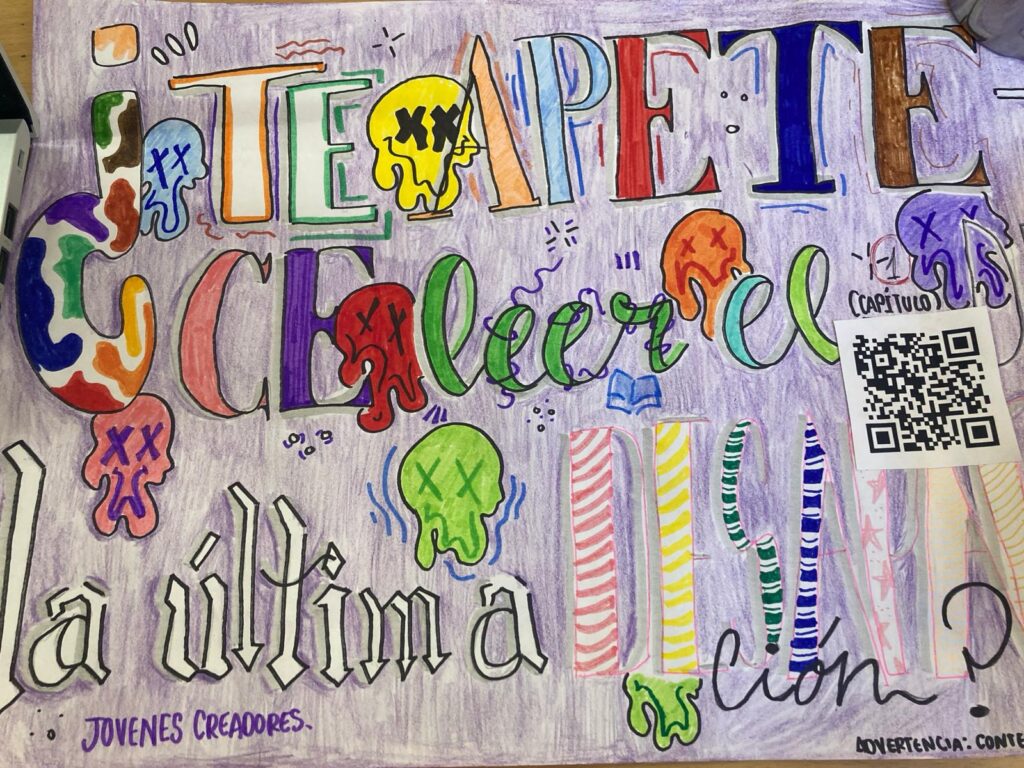 ¿TE APETE-
CE leer el
(CAPÍTULO)
la última
ción?
JOVENES CREADORES.
ADVERTENCIA: CONTE